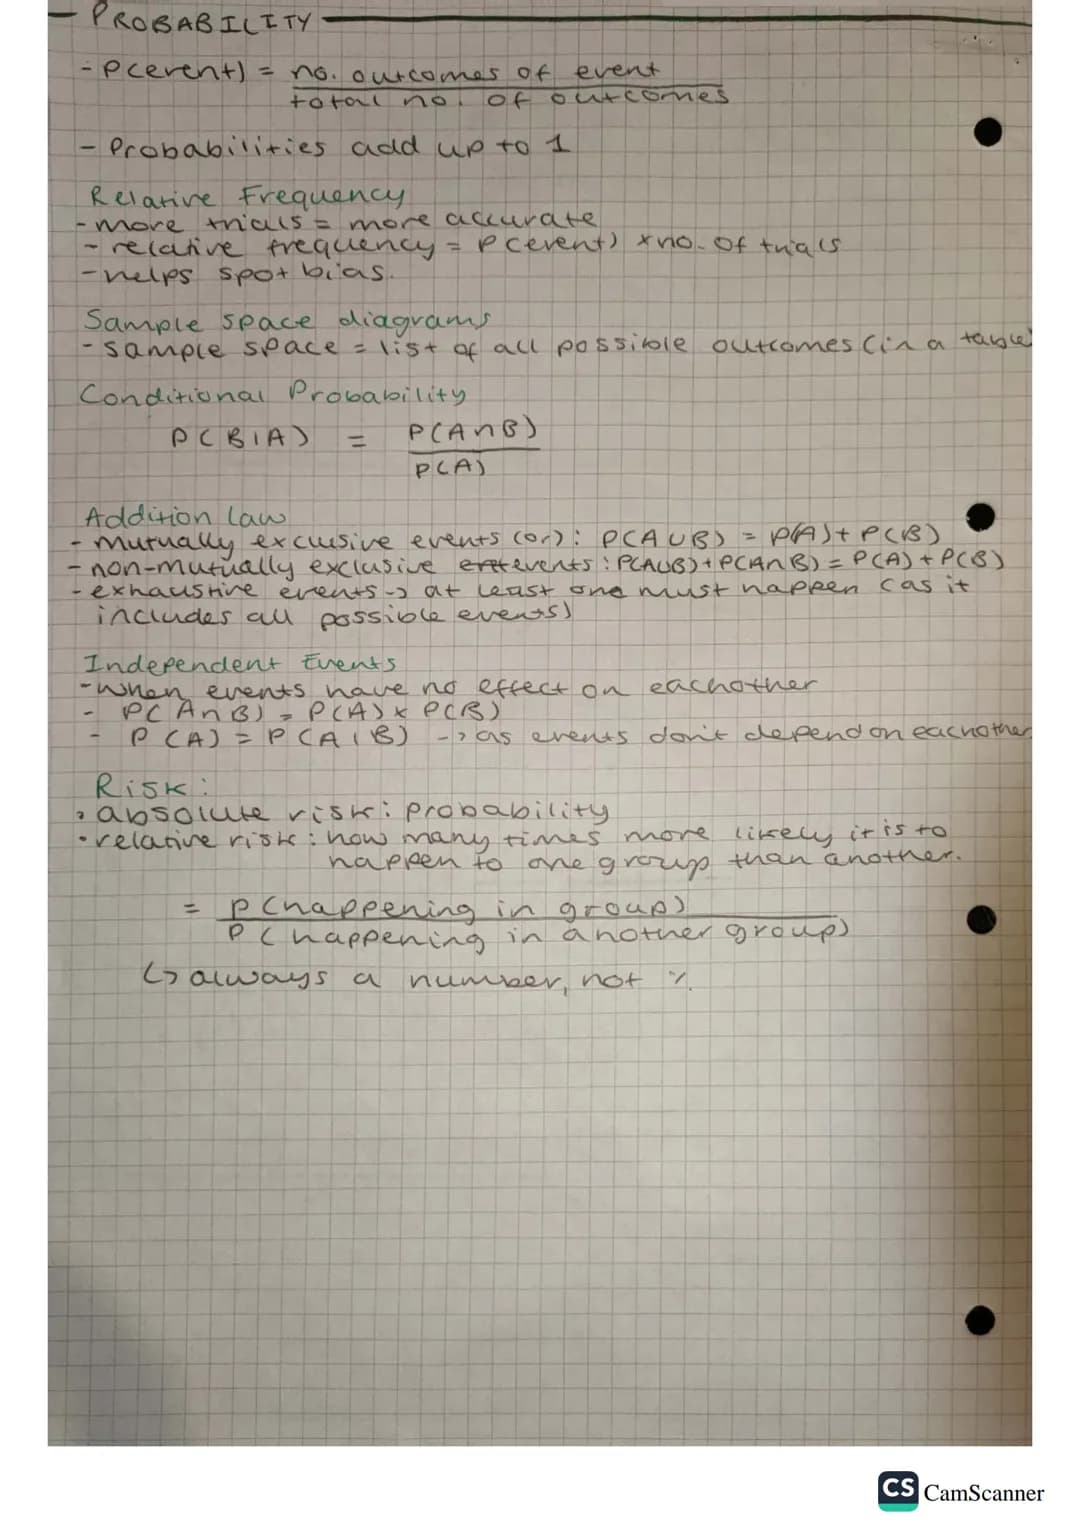 - PROBABILITY
- P(event) = no. outcomes of event
total no. of outcomes
- Probabilities add up to 1
Relative Frequency
- more trials = more accurate
- relative frequency = P(event) × no. of trials
- helps spot bias.
Sample space diagrams
- sample space = list of all possible outcomes (in a table)
Conditional Probability
P(B|A) = P(A∩B)
P(A)
Addition law
- mutually exclusive events (or): P(A∪B) = P(A) + P(B)
- non-mutually exclusive events: P(A∪B) + P(A∩B) = P(A) + P(B)
- exhaustive events → at least one must happen (as it
includes all possible events)
Independent Events
- when events have no effect on eachother
- P(A∩B) = P(A) × P(B)
- P(A) = P(A|B) → as events don't depend on eachother
Risk:
• absolute risk: probability
• relative risk: how many times more likely it is to
happen to one group than another.
= P(happening in group)
P(happening in another group)
↳ always a number, not %.
CS CamScanner